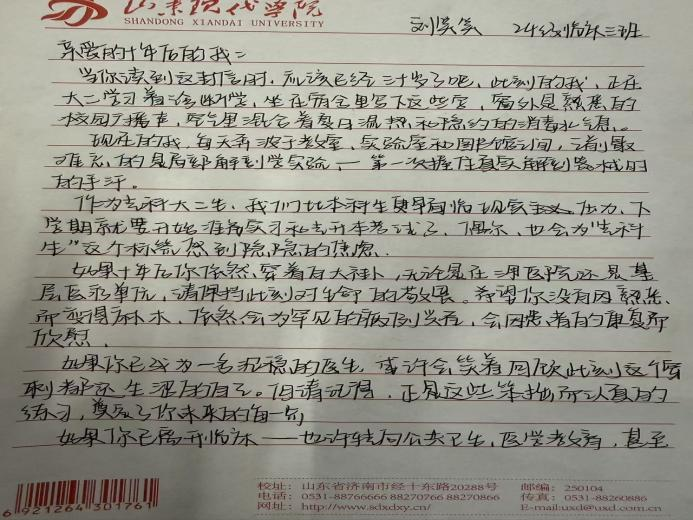 山东现代学院
SHANDONG XIANDAI UNIVERSITY
刘笑笑 24级临床三班
亲爱的十年后的我：
当你读到这封信时，应该已经三十岁了吧，此刻的我，正在
大二学习着诊断学，坐在宿舍里写下这些字，窗外是熟悉的
校园广播声，空气里混合着夏日温热和隐约的消毒水气息。
现在的我，每天奔波于教室、实验室和图书馆之间，
难忘的是局部解剖学实验，一第一次握住真实解剖器械时
的手汗。
作为专科大二生，我们比本科生更早面临现实压力，下
学期就要开始准备实习和专升本考试了，偶尔，也会为"专科
生"这个标签感到隐隐的焦虑
如果十年后你依然穿着白大褂，无论是在三甲医院还是基
层医疗单位，请保持此刻对生命的敬畏。希望你没有因熟练
而变得麻木，依然会为罕见的病例兴奋，会因患者的康复而
欣慰
如果你已成为一名沉稳的医生，或许会笑着回顾此刻这个
刺都还生涩的自己。但请记得，正是这些笨拙而认真的
练习，奠定了你未来的每一步
如果你已离开临床——也许转向公共卫生，医学教育，甚至
校址：山东省济南市经十东路20288号 邮编：250104
电话：0531-88766666 88270766 88270866 传真：0531-88260886
网址：http://www.sdxdxy.cn/ E-mail:uxd@uxd.com.cn
6921264301761